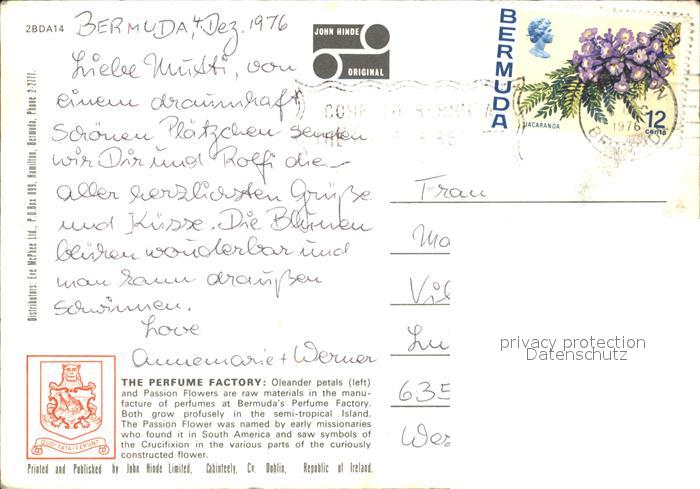 2BDA14
BERMUDA, 4. Dez. 1976
Liebe Mutti, von
einem draumhaft
schönen Plätzchen senden
wir Dir und Rolfi die
aller herzlichsten Grüße
und Küsse. Die Blumen
blühen wonderbar und
man kann draußen
schwimmen.
Love
Annemarie + Werner
Distributors: Eve McPhee Ltd., P.O.Box 899, Hamilton, Bermuda, Phone 2-2777.
QUO FATA FERUNT
THE PERFUME FACTORY: Oleander petals (left)
and Passion Flowers are raw materials in the manu-
facture of perfumes at Bermuda's Perfume Factory.
Both grow profusely in the semi-tropical Island.
The Passion Flower was named by early missionaries
who found it in South America and saw symbols of
the Crucifixion in the various parts of the curiously
constructed flower.
Printed and Published by John Hinde Limited, Cabinteely, Co. Dublin, Republic of Ireland.
JOHN HINDE
ORIGINAL
BERMUDA
JACARANDA
12
cents
1976
Frau
Ma
Vil
Lu
635
Wes
privacy protection
Datenschutz